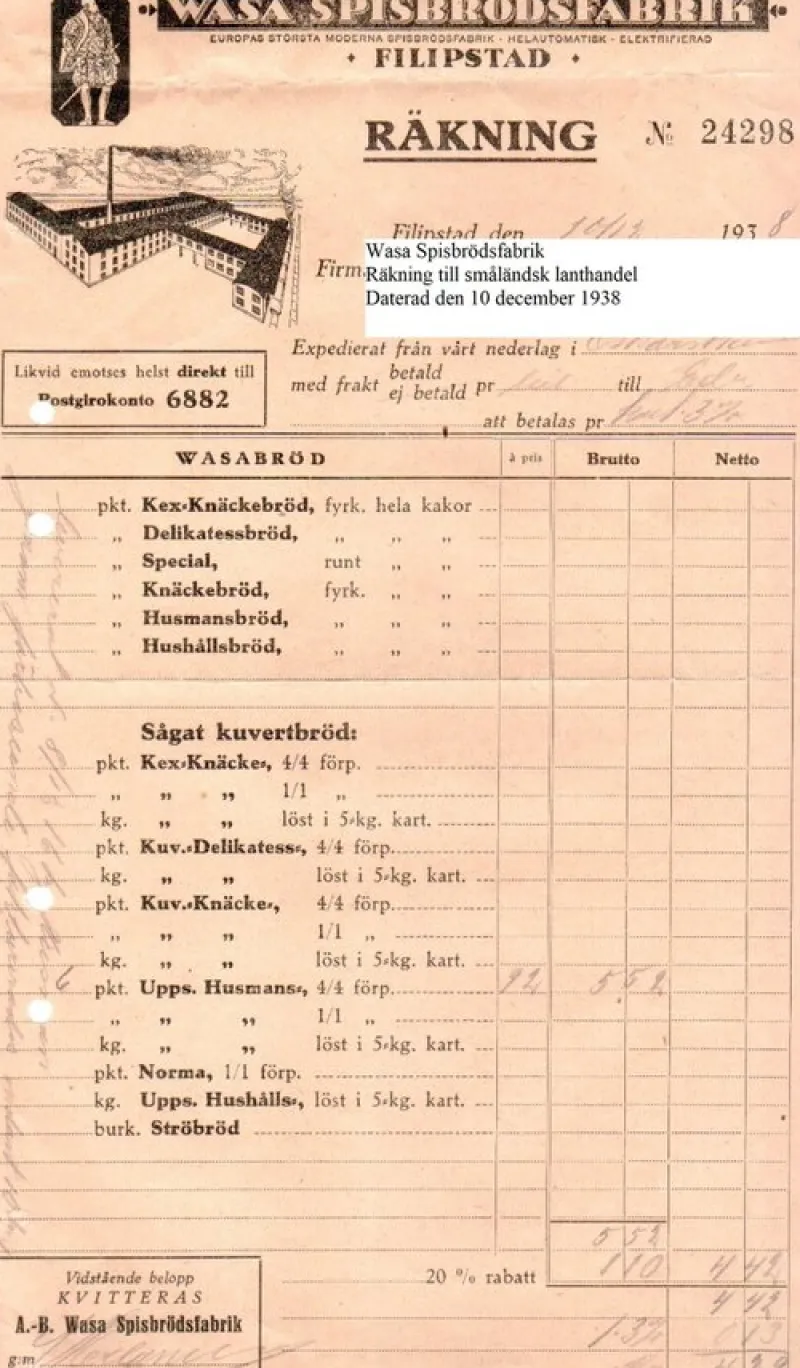 WASA SPISBRÖDSFABRIK
EUROPAS STÖRSTA MODERNA SPISBRÖDSFABRIK - HELAUTOMATISK - ELEKTRIFIERAD
FILIPSTAD
RÄKNING № 24298
Filipstad den 10/12 1938
Firm
Wasa Spisbrödsfabrik
Räkning till småländsk lanthandel
Daterad den 10 december 1938
Expedierat från vårt nederlag i
med frakt betald ej betald pr till
att betalas pr
Likvid emotses helst direkt till
Postgirokonto 6882
WASABRÖD à pris Brutto Netto
pkt. Kex-Knäckebröd, fyrk. hela kakor
„ Delikatessbröd, „ „ „
„ Special, runt „ „
„ Knäckebröd, fyrk. „ „
„ Husmansbröd, „ „ „
„ Hushållsbröd, „ „ „
Sågat kuvertbröd:
pkt. Kex-Knäcke-, 4/4 förp.
„ „ „ 1/1 „
kg. „ „ löst i 5-kg. kart.
pkt. Kuv.-Delikatess-, 4/4 förp.
kg. „ „ löst i 5-kg. kart.
pkt. Kuv.-Knäcke-, 4/4 förp.
„ „ „ 1/1 „
kg. „ „ löst i 5-kg. kart.
6 pkt. Upps. Husmans-, 4/4 förp. 92 5 52
„ „ „ 1/1 „
kg. „ „ löst i 5-kg. kart.
pkt. Norma, 1/1 förp.
kg. Upps. Hushålls-, löst i 5-kg. kart.
burk. Ströbröd
5 52
20 % rabatt 1 10 4 42
4 42
1.3% 0 13
Vidstående belopp
KVITTERAS
A.-B. Wasa Spisbrödsfabrik
g:m